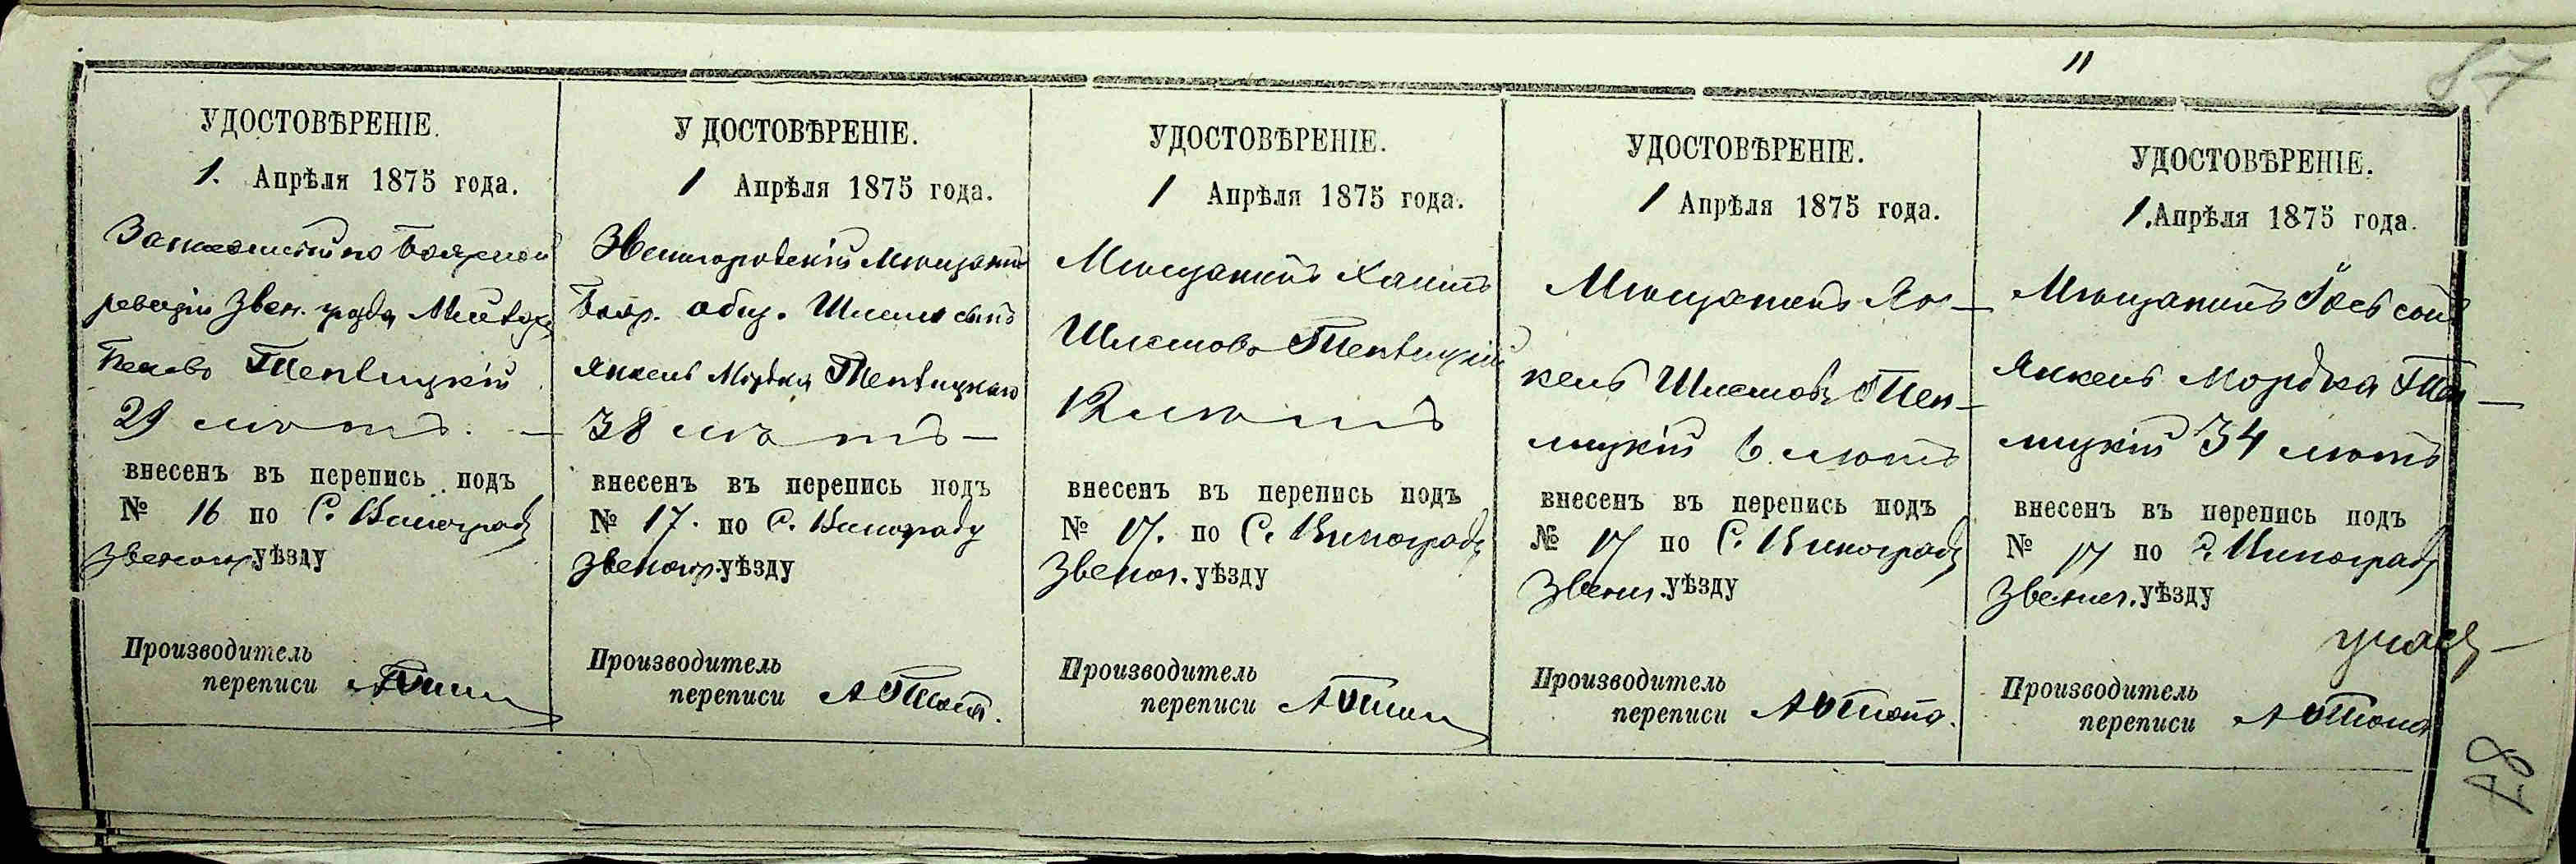 11
87
УДОСТОВѢРЕНІЕ.
1. Апрѣля 1875 года.
по Боярской
ревизіи Звен. уѣзда
Тепвицкій
29 лѣтъ. —
внесенъ въ перепись подъ
№ 16 по С. Винограду
Звеногор. уѣзду
Производитель
переписи
У ДОСТОВѢРЕНІЕ.
1 Апрѣля 1875 года.
Звенигородскій Мѣщанинъ
Бояр. общ. Шлема сынъ
Янкель Мордка Тепвицкаго
38 лѣтъ —
внесенъ въ перепись подъ
№ 17. по С. Винограду
Звеногор. уѣзду
Производитель
переписи
УДОСТОВѢРЕНІЕ.
1 Апрѣля 1875 года.
Мѣщанинъ Хаимъ
Шлемовъ Тепвицкій
12 лѣтъ
внесенъ въ перепись подъ
№ 17. по С. Винограду
Звеног. уѣзду
Производитель
переписи
УДОСТОВѢРЕНІЕ.
1 Апрѣля 1875 года.
Мѣщанинъ Ян-
кель Шлемовъ Теп-
лицкій 6 лѣтъ
внесенъ въ перепись подъ
№ 17 по С. Винограду
Звениг. уѣзду
Производитель
переписи
УДОСТОВѢРЕНІЕ.
1. Апрѣля 1875 года.
Мѣщанинъ Іось сынъ
Янкель Мордка Теп-
лицкій 34 лѣтъ
внесенъ въ перепись подъ
№ 17 по С. Винограду
Звениг. уѣзду
Производитель
переписи